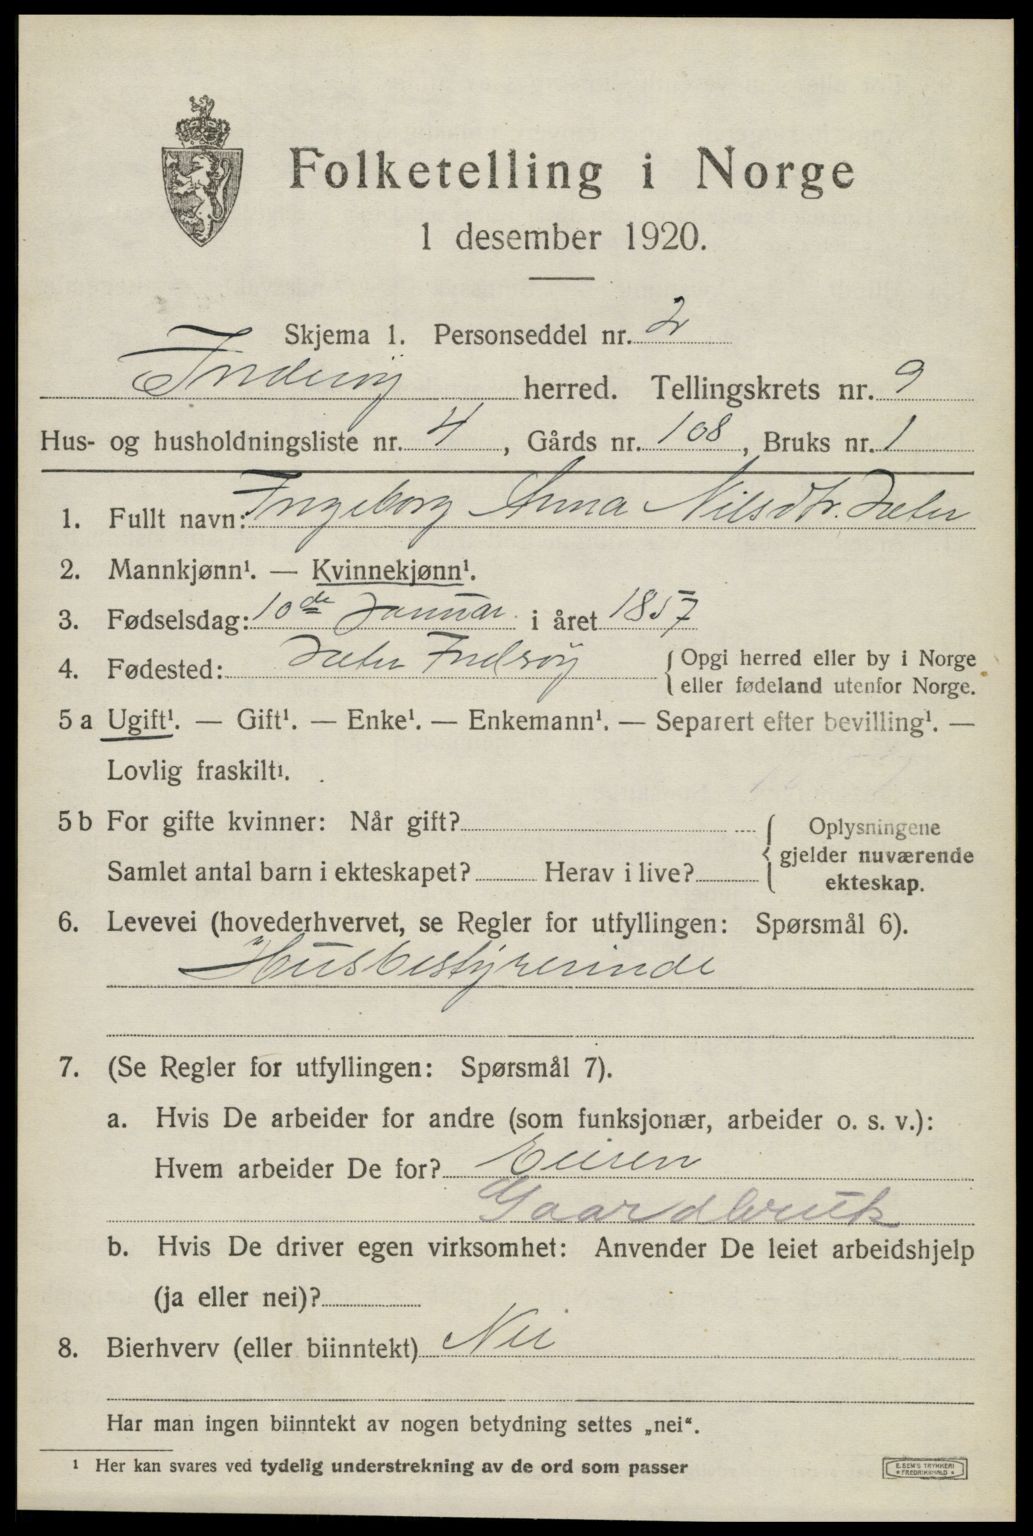 Folketelling i Norge
1 desember 1920.
Skjema 1. Personseddel nr. 2
Inderøy herred. Tellingskrets nr. 9
Hus- og husholdningsliste nr. 4, Gårds nr. 108, Bruks nr. 1
1. Fullt navn: Ingeborg Anna Nilsdtr.
2. Mannkjønn¹. — Kvinnekjønn¹.
3. Fødselsdag: 10de Januar i året 1857
4. Fødested: Inderøy { Opgi herred eller by i Norge
eller fødeland utenfor Norge.
5 a Ugift¹. — Gift¹. — Enke¹. — Enkemann¹. — Separert efter bevilling¹. —
Lovlig fraskilt¹.
5 b For gifte kvinner: Når gift? { Oplysningene
gjelder nuværende
Samlet antal barn i ekteskapet? Herav i live? ekteskap.
6. Levevei (hovederhvervet, se Regler for utfyllingen: Spørsmål 6).
Husbestyrerinde
7. (Se Regler for utfyllingen: Spørsmål 7).
a. Hvis De arbeider for andre (som funksjonær, arbeider o. s. v.):
Hvem arbeider De for? Eieren
Gaardbruk
b. Hvis De driver egen virksomhet: Anvender De leiet arbeidshjelp
(ja eller nei)?
8. Bierhverv (eller biinntekt) Nei
Har man ingen biinntekt av nogen betydning settes „nei“.
¹ Her kan svares ved tydelig understrekning av de ord som passer
E. SEM'S TRYKKERI
FREDRIKSHALD